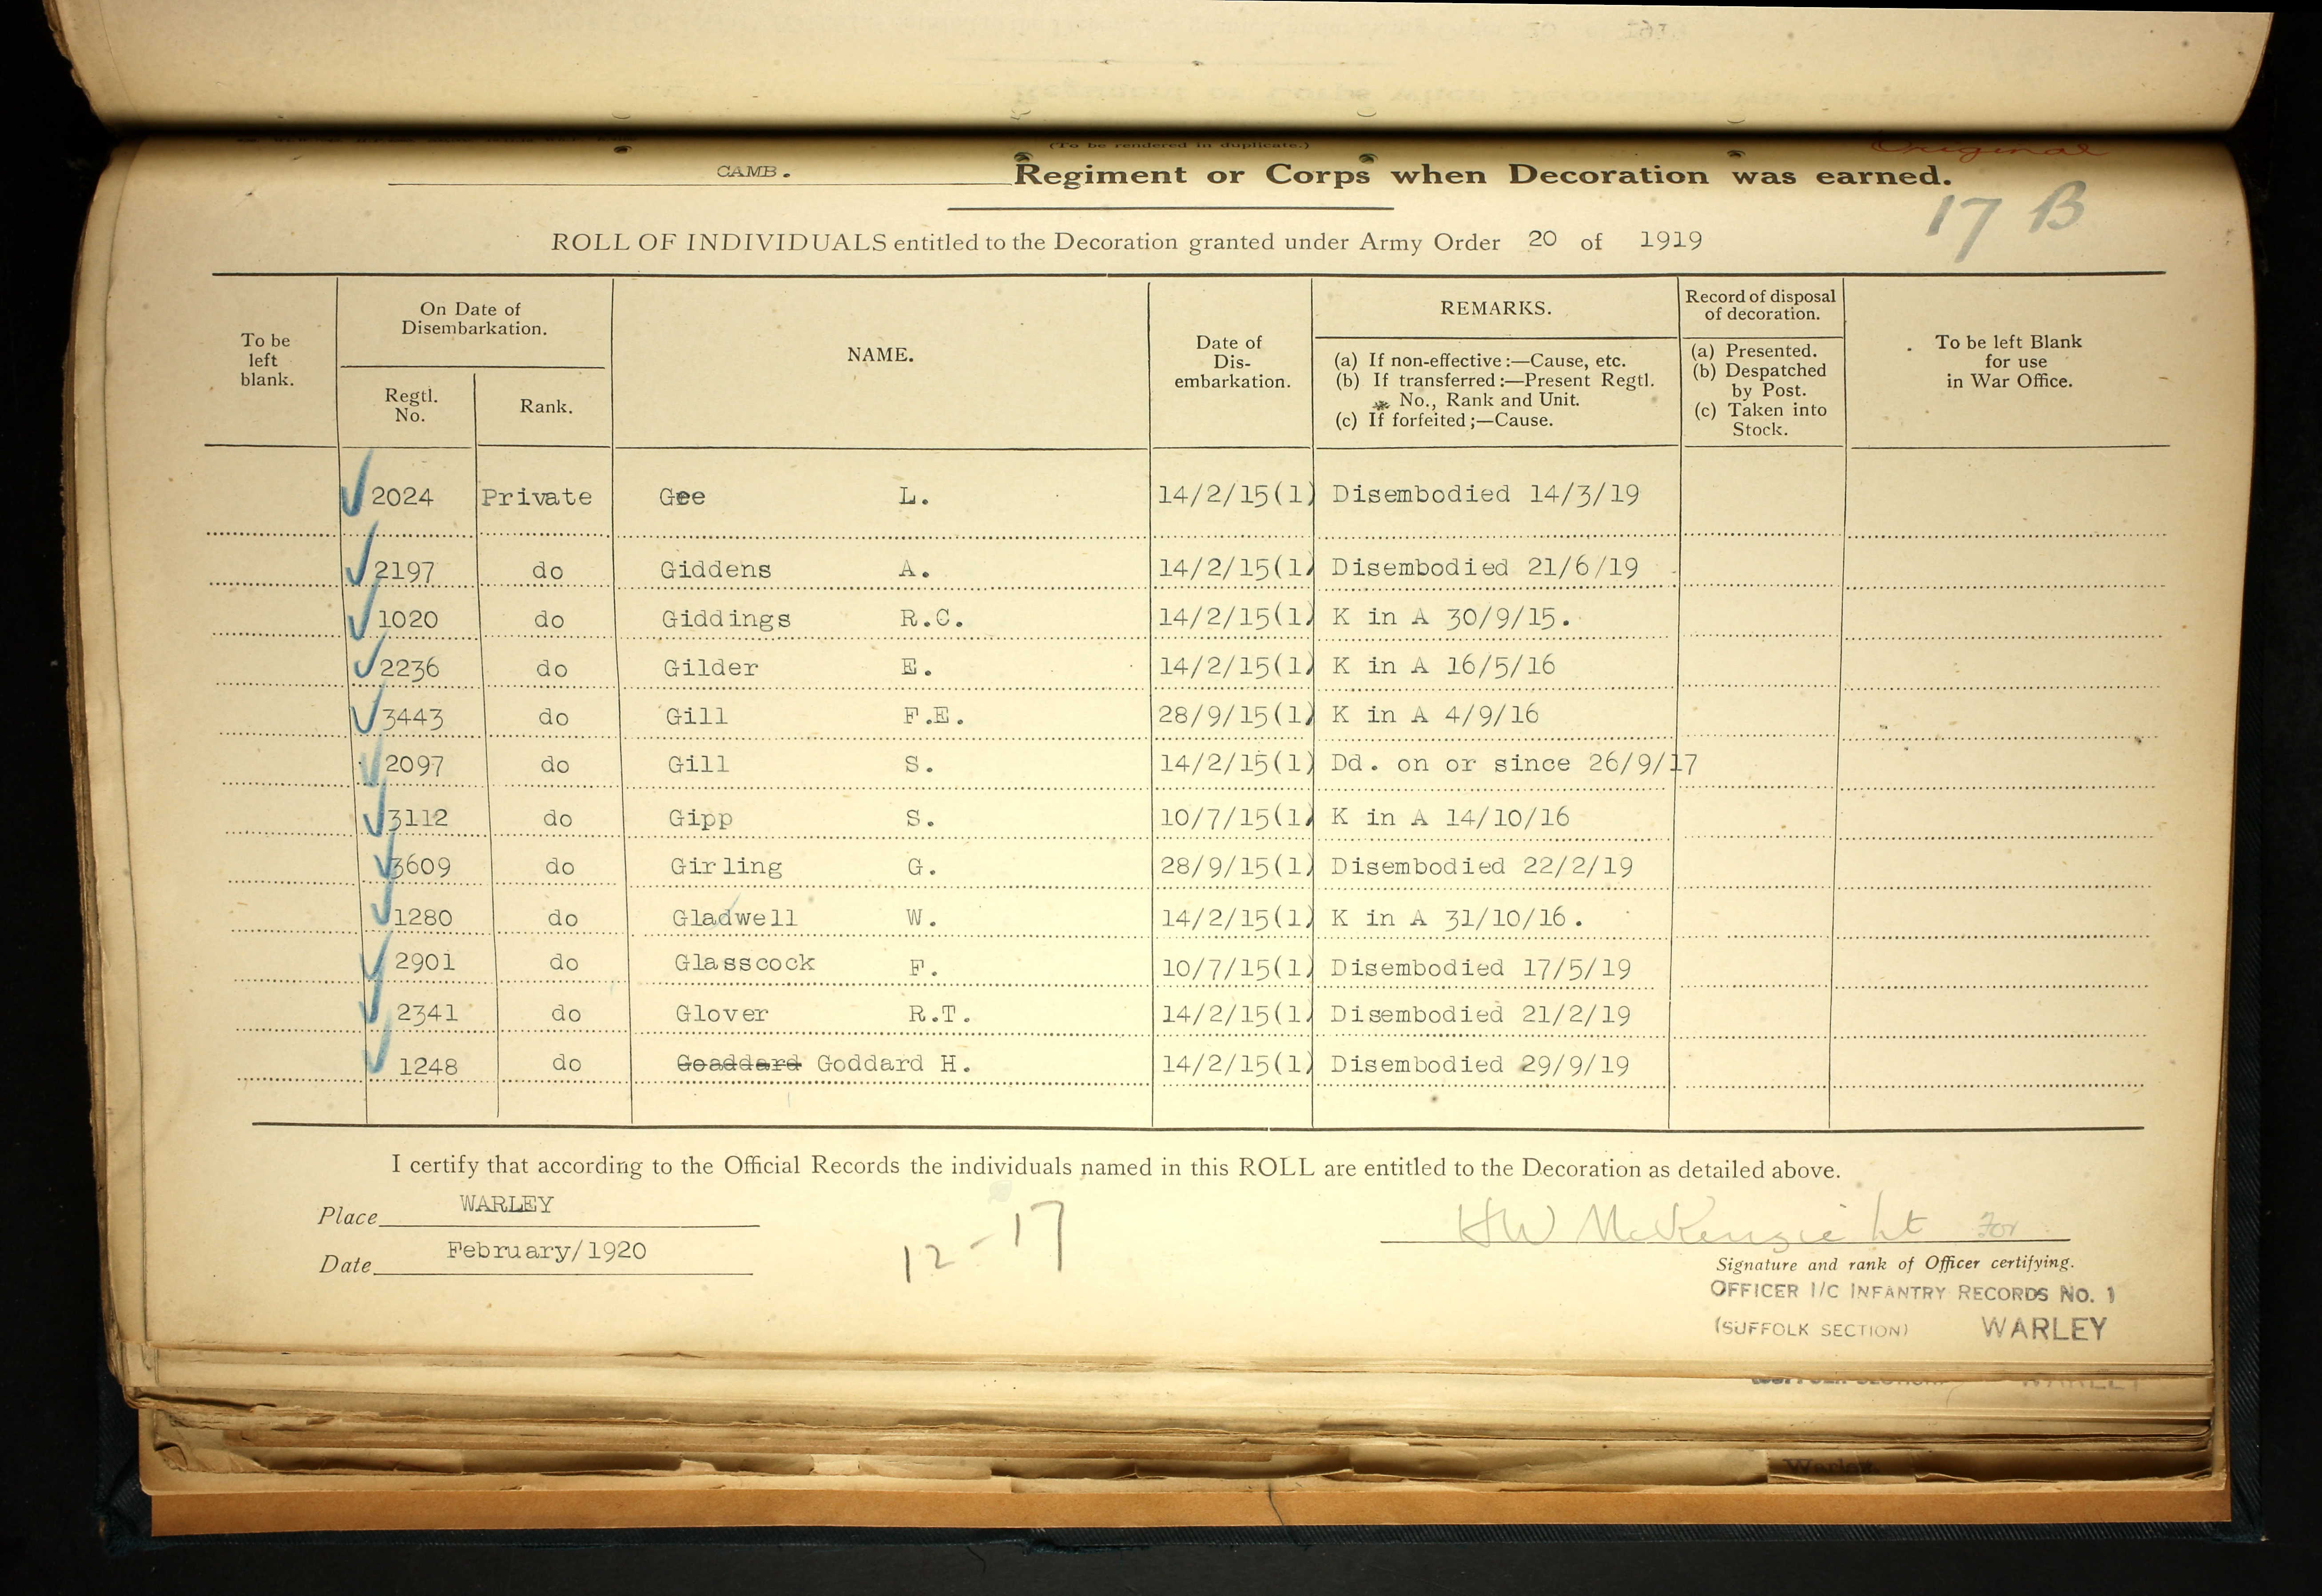 (To be rendered in duplicate.)
Original
CAMB. Regiment or Corps when Decoration was earned.
17 B
ROLL OF INDIVIDUALS entitled to the Decoration granted under Army Order 20 of 1919
To be left blank.
On Date of Disembarkation.
Regtl. No.
Rank.
NAME.
Date of Dis-embarkation.
REMARKS.
(a) If non-effective:—Cause, etc.
(b) If transferred:—Present Regtl. No., Rank and Unit.
(c) If forfeited;—Cause.
Record of disposal of decoration.
(a) Presented.
(b) Despatched by Post.
(c) Taken into Stock.
To be left Blank for use in War Office.
2024 Private Gee L. 14/2/15(1) Disembodied 14/3/19
2197 do Giddens A. 14/2/15(1) Disembodied 21/6/19
1020 do Giddings R.C. 14/2/15(1) K in A 30/9/15.
2236 do Gilder E. 14/2/15(1) K in A 16/5/16
3443 do Gill F.E. 28/9/15(1) K in A 4/9/16
2097 do Gill S. 14/2/15(1) Dd. on or since 26/9/17
3112 do Gipp S. 10/7/15(1) K in A 14/10/16
3609 do Girling G. 28/9/15(1) Disembodied 22/2/19
1280 do Gladwell W. 14/2/15(1) K in A 31/10/16.
2901 do Glasscock F. 10/7/15(1) Disembodied 17/5/19
2341 do Glover R.T. 14/2/15(1) Disembodied 21/2/19
1248 do Goaddard Goddard H. 14/2/15(1) Disembodied 29/9/19
I certify that according to the Official Records the individuals named in this ROLL are entitled to the Decoration as detailed above.
Place WARLEY
Date February/1920
12-17
HW McKenzie Lt For
Signature and rank of Officer certifying.
OFFICER I/C INFANTRY RECORDS No. 1
(SUFFOLK SECTION) WARLEY
WARLEY
Warley.